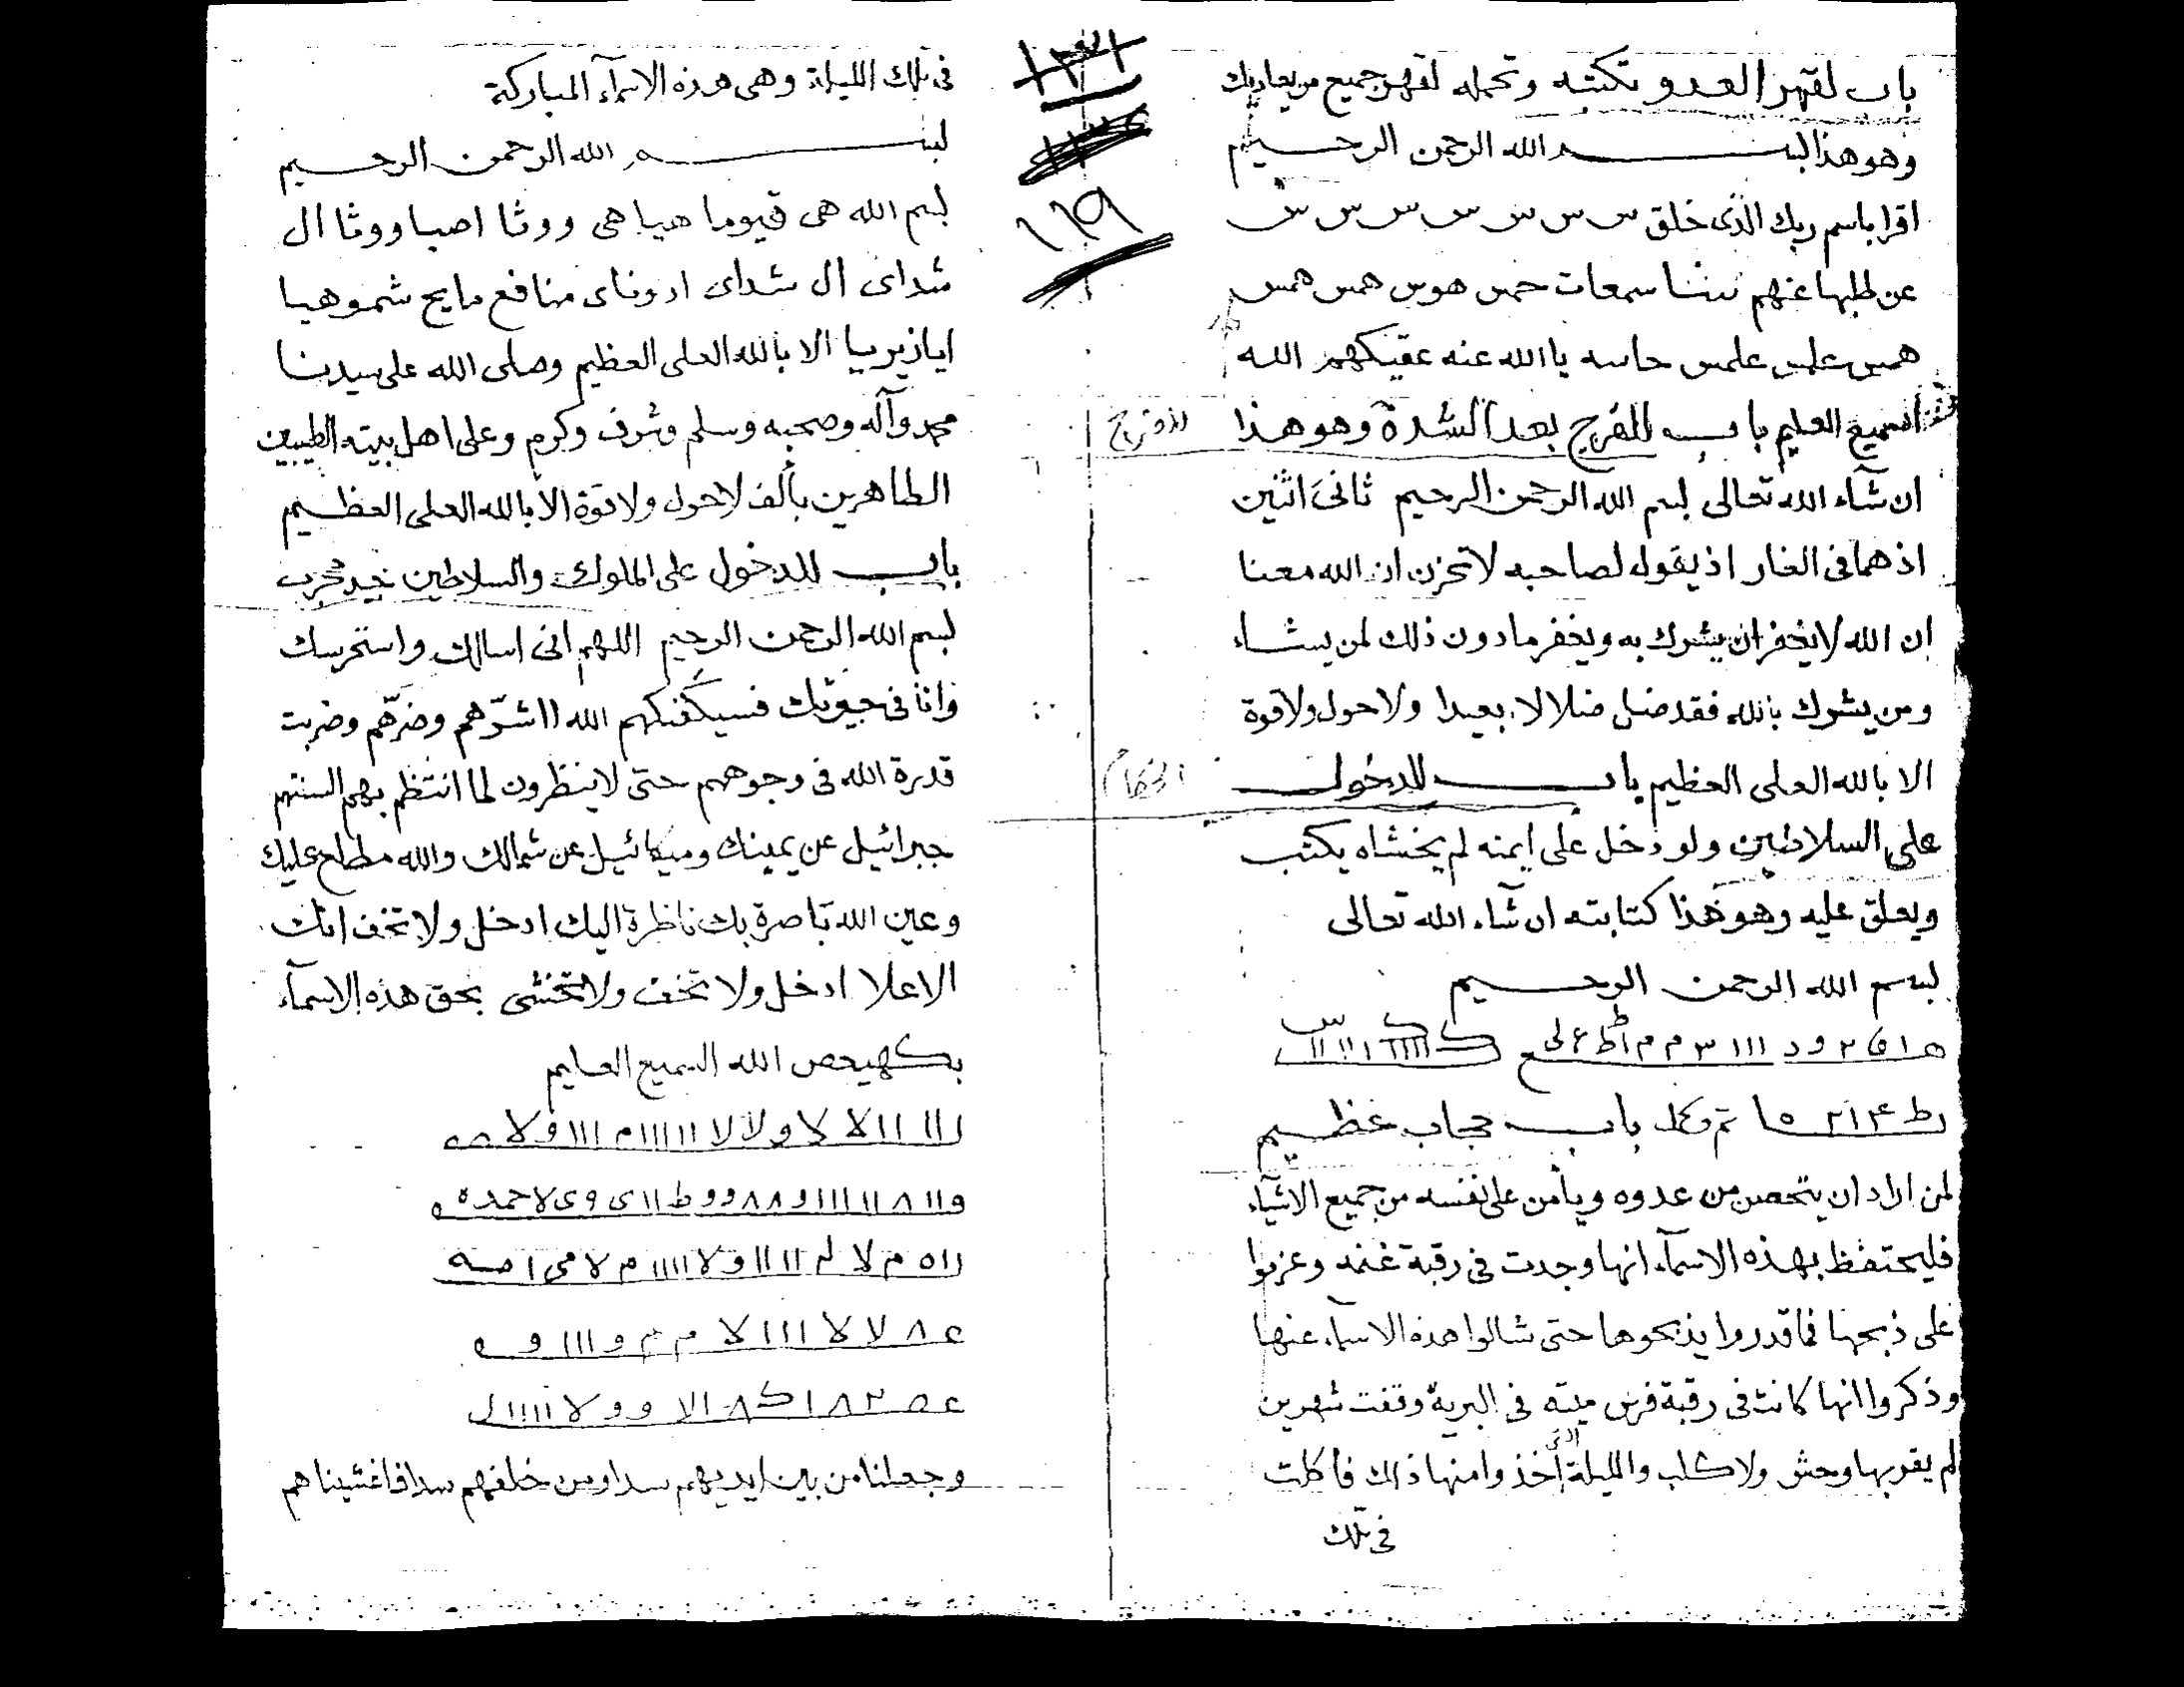 باب لقهر العدو تكتبه وتحمله لقهر جميع من يعاديك
وهو هذا بسم الله الرحمن الرحيم
اقرا باسم ربك الذى خلق س س س س س س س
عن طلبها عنهم سمعات حمس هوس همس همس
همس علمس علمس حاسه يا الله عنه الله
السميع العليم باب للفرج بعد الشدة وهو هذا
ان شاء الله تعالى بسم الله الرحمن الرحيم ثانى اثنين
اذ هما فى الغار اذ يقول لصاحبه لا تحزن ان الله معنا
ان الله لا يغفر ان يشرك به ويغفر ما دون ذلك لمن يشاء
ومن يشرك بالله فقد ضل ضلالا بعيدا ولا حول ولا قوة
الا بالله العلى العظيم باب للدخول
على السلاطين ولو دخل على لم يخشاه يكتب
ويعلق عليه وهو هذا كتابته ان شاء الله تعالى
بسم الله الرحمن الرحيم
تم وكمل باب حجاب عظيم
لمن اراد ان يتحصن من عدوه ويأمن على نفسه من جميع الاشياء
فليحتفظ بهذه الاسماء انها وجدت فى رقبة غنمه وعزموا
على ذبحها فما قدروا يذبحوها حتى شالوا هذه الاسماء عنها
وذكروا انها كانت فى رقبة فرس ميته فى البرية وقفت شهرين
لم يقربها وحش ولا كلب والليلة الذى أخذوا منها ذلك فأكلت
فى تلك
١٦٩
فى تلك الليلة وهى هذه الاسماء المباركة
بسم الله الرحمن الرحيم
بسم الله هى قيوما هيا هى ووثا اصباووثا ال
شداى ال شداى ادوناى منافع مايح شموهيا
الا بالله العلى العظيم وصلى الله على سيدنا
محمد وآله وصحبه وسلم وشرف وكرم وعلى اهل بيته الطيبين
الطاهرين بألف لا حول ولا قوة الا بالله العلى العظيم
باب للدخول على الملوك والسلاطين جيد مجرب
بسم الله الرحمن الرحيم اللهم انى اسالك واستحرسك
وانا فى فسيكفيكهم الله شرّهم وضرّهم وضربت
قدرة الله فى وجوههم حتى لا ينظرون لما انتظم بهم السنتهم
جبرائيل عن يمينك وميكائيل عن شمالك والله مطلع عليك
وعين الله ناصرة بك ناظرة اليك ادخل ولا تخف انك
الاعلا ادخل ولا تخف ولا تخشى بحق هذه الاسماء
بكهيعص الله السميع العليم
وجعلنا من بين ايديهم سدا ومن خلفهم سدا فاغشيناهم